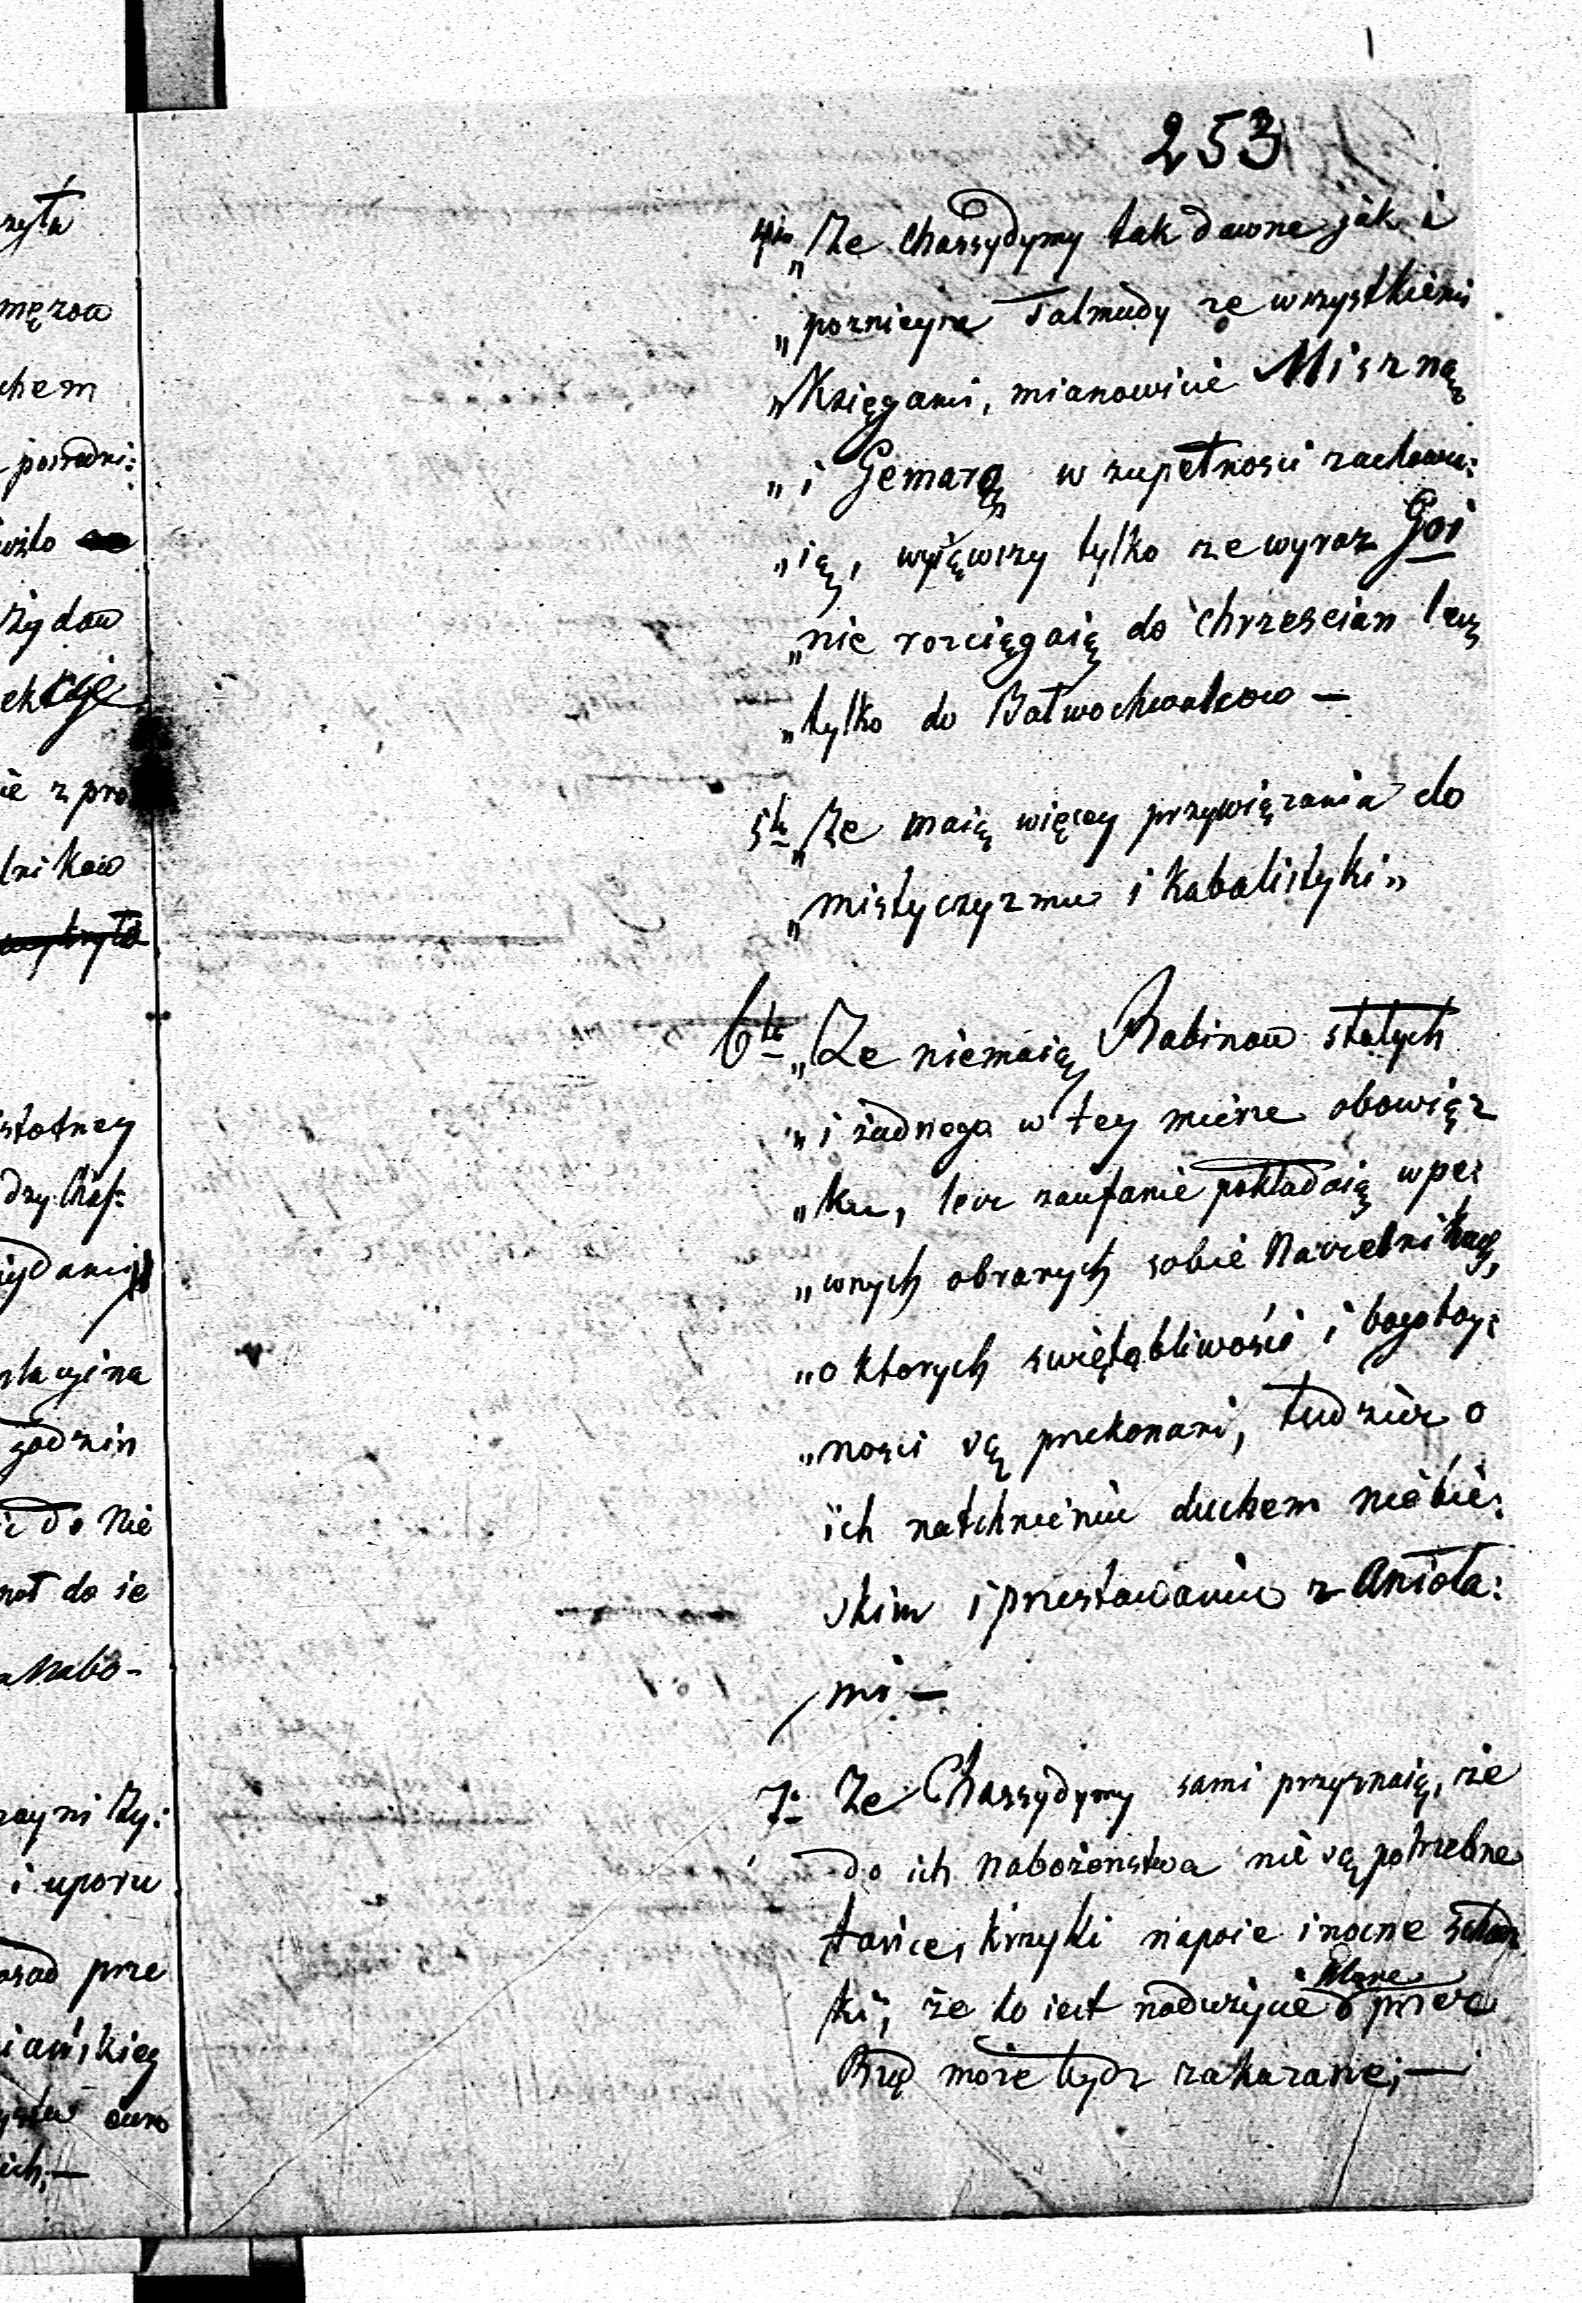 253
4to „Ze Chassydymy tak dawne jak i
„pozniejsze Talmudy ze wszystkiemi
„Księgami, mianowicie Miszną
„i Gemarą w zupełnosci zachowu:
„ią, wyiąwszy tylko ze wyraz Goi
„nie rozciągaią do chrzescian lecz
„tylko do Bałwochwalcow —
5te „Ze maią więcey przywiązania do
„mistyczyzmu i Kabalistyki„
6te „Ze niemaią Rabinow stałych
„i żadnego w tey mierze obowiąz
„ku, lecz zaufanie pokładaią w pe:
„wnych obranych sobie Naczelnikach,
„o ktorych swiętobliwości i bogoboy:
„nosci są przekonani, tudzież o
ich natchnieniu duchem niebie:
skim i przestawaniu z Anioła:
mi —
7. Ze Chassydymy sami przyznaią, że
do ich nabożeństwa nie są potrzebne
tańce, krzyki napoie i nocne schadz
ki, że to iest nadużycie które przez
Rząd może bydz zakazane; —
zyta
męzow
chem
posredni:
Żydow
ekcye
ie z pro
lnikow
istotney
dzy Chas:
żydami
godzin
do Nie
nabo-
i uporu
osad prze
iańskiey
ich; —